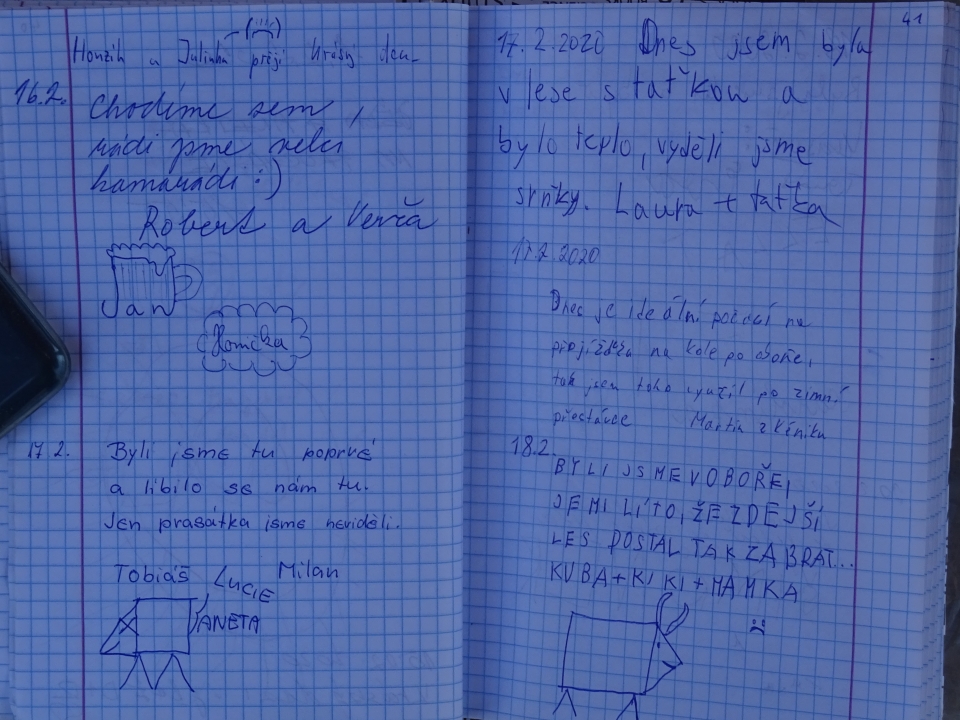 Honzík a Julinka přejí krásný den
16.2. Chodíme sem,
rádi jsme velcí
kamarádi :)
Robert a Verča
Jan
Homička
17.2. Byli jsme tu poprvé
a líbilo se nám tu.
Jen prasátka jsme neviděli.
Tobiáš Lucie Milan
ANETA
41
17.2.2020 Dnes jsem byla
v lese s taťkou a
bylo teplo, vyděli jsme
srňky. Laura + taťka
17.2.2020
Dnes je ideální počasí na
projížďku na kole po oboře,
tak jsem toho využil po zimní
přestávce Martin z
18.2.
BYLI JSME V OBOŘE,
JE MI LÍTO, ŽE ZDEJŠÍ
LES DOSTAL TAK ZABRAT...
KUBA + KIKI + MAMKA